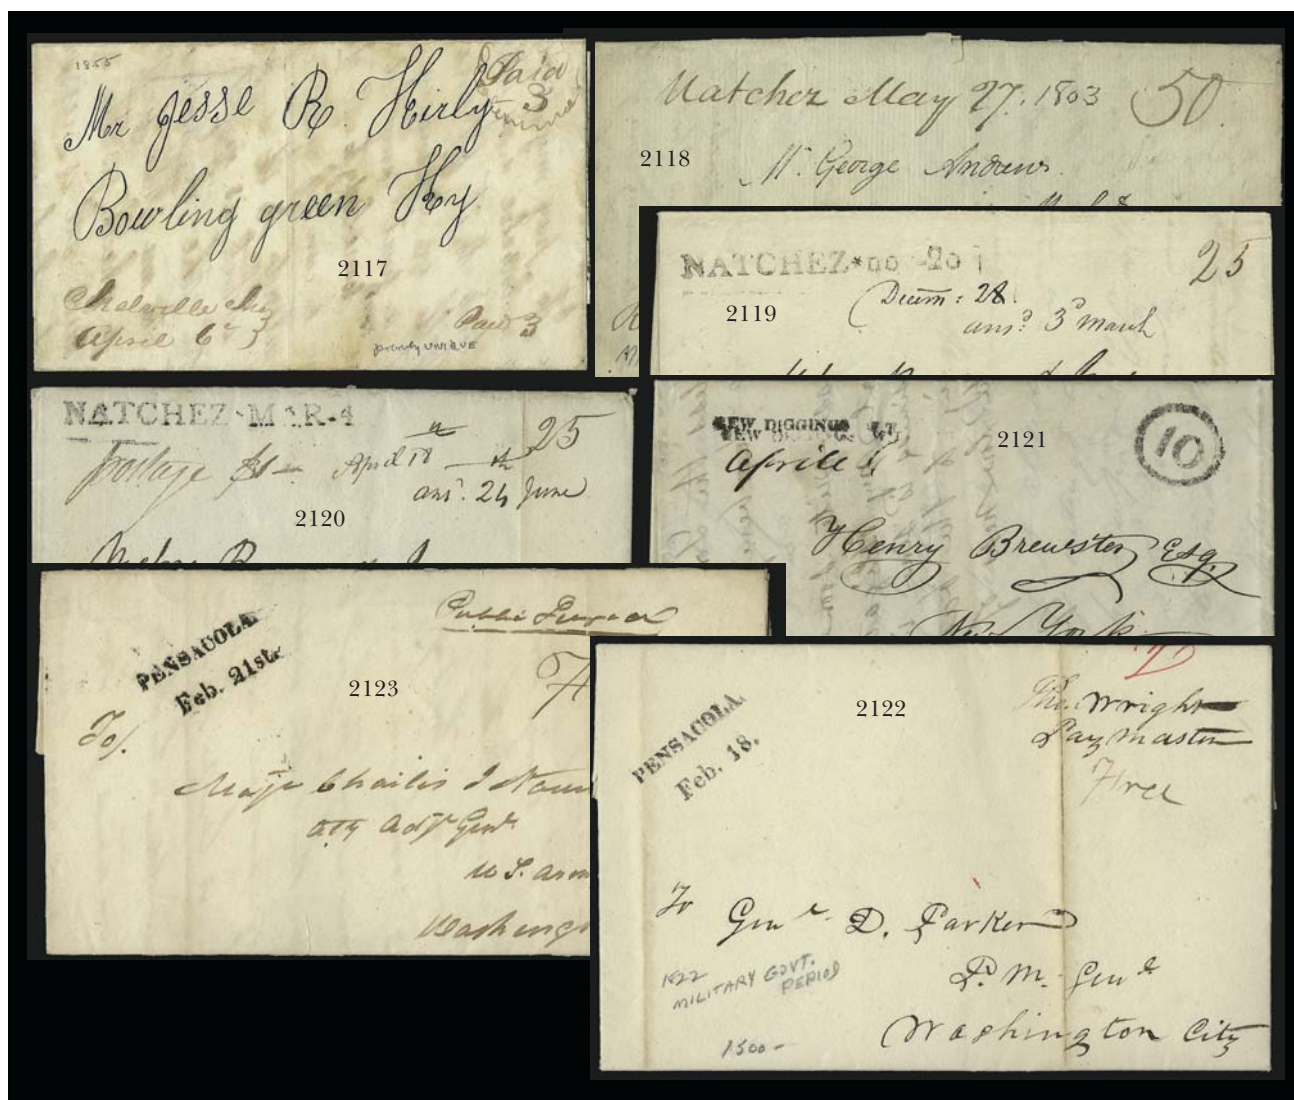 1855
Paid
3
Mr Jesse R. Kirly
Bowling green Ky
2117
April 6
Paid 3
UNIQUE
Natchez May 27. 1803 50
2118
Mr. George Andrews
NATCHEZ*no -20 25
2119
Decem: 28.
ans.d 3d March
NATCHEZ·MAR-4
25
Postage $1— April 18
ans.d 24 June
2120
NEW DIGGINGS W.T.
10
2121
April
Henry Brewster Esq.
New York
PENSACOLA.
Feb. 21st.
Public
F
2123
To/.
Majr
Adjt Genl
U S. arm
Washingt
PENSACOLA.
Feb. 18.
2122
Tho. Wright
Paymaster
Free
To Genl. D. Parker
P. M. Genl
Washington City
1822
MILITARY GOVT.
PERIOD
1500-